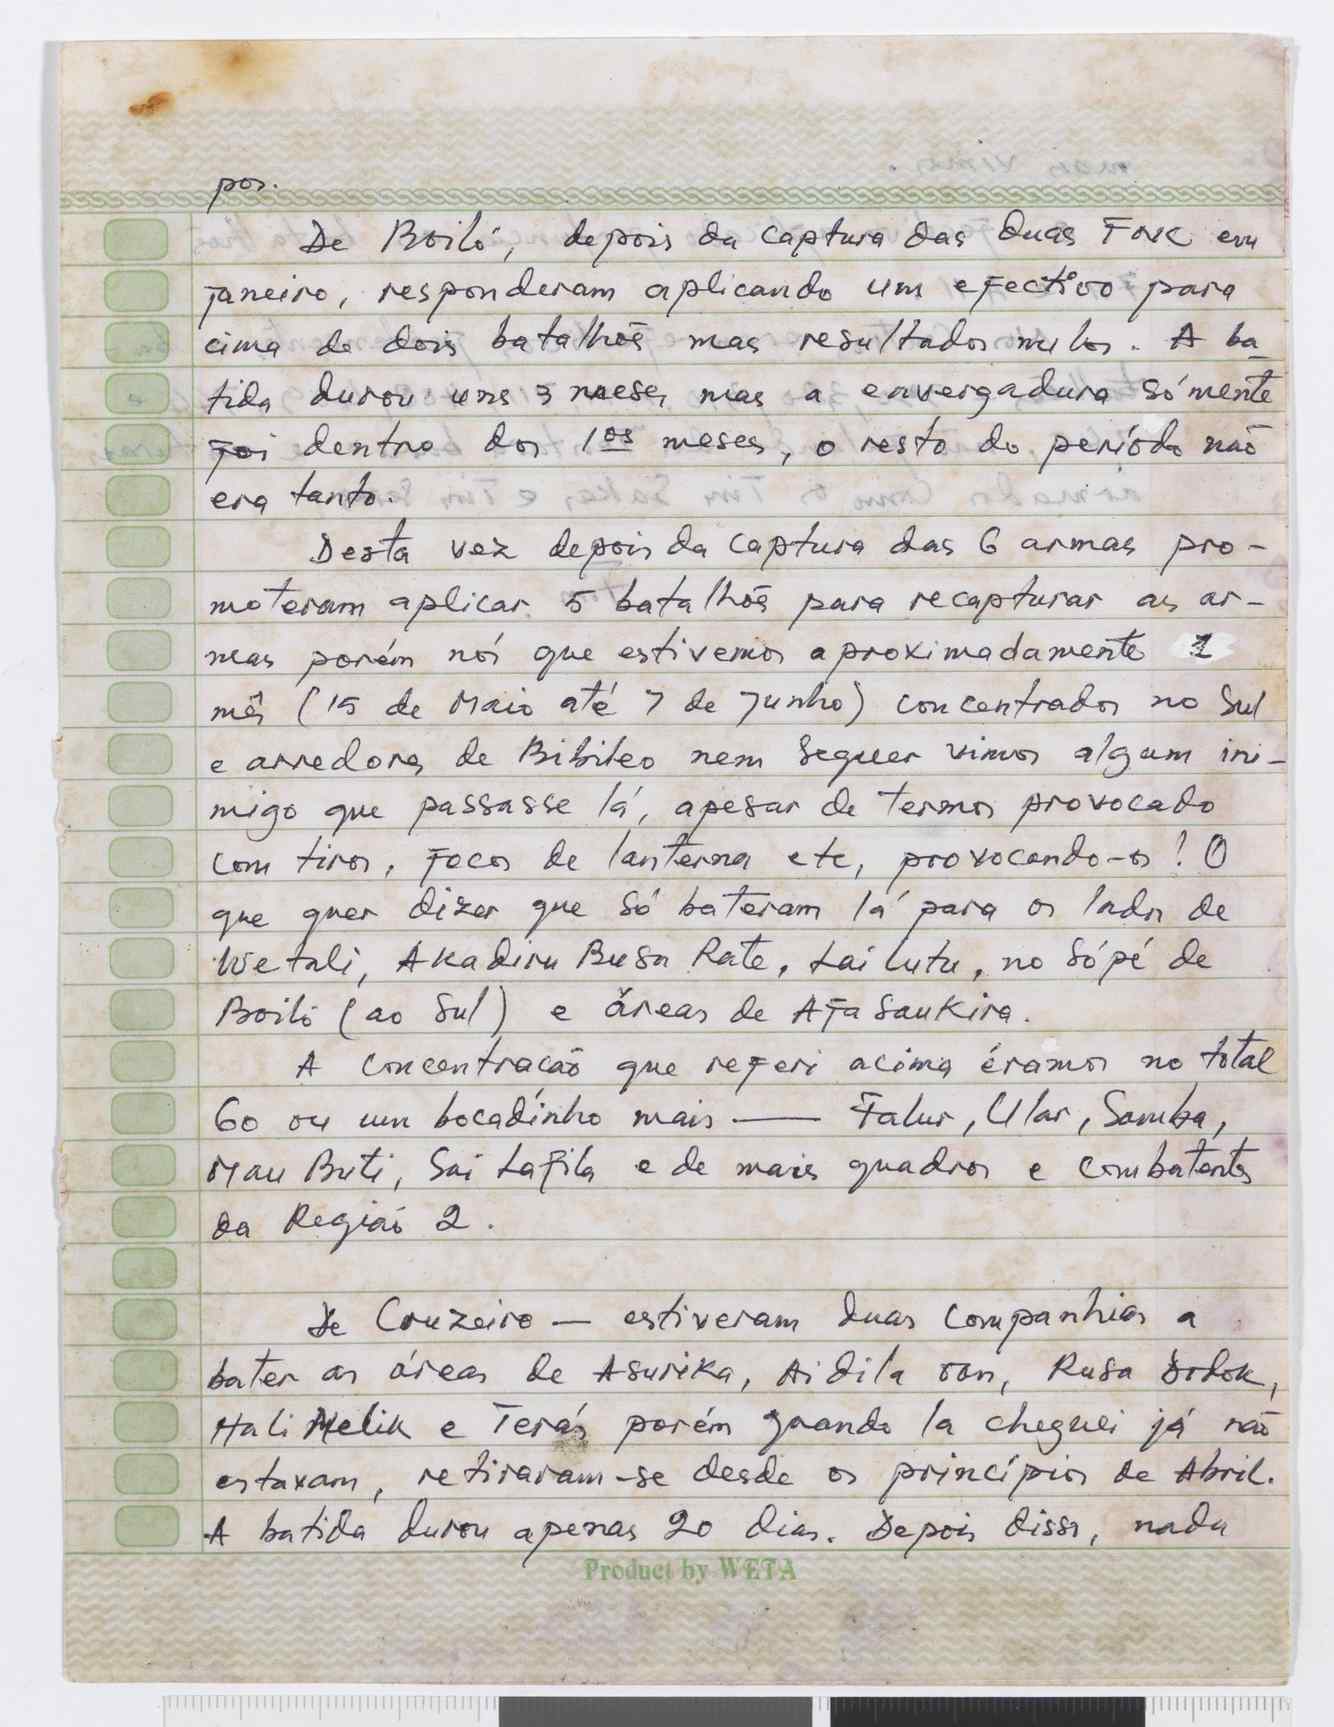 pos.
De Boiló, depois da captura das duas FNC em
Janeiro, responderam aplicando um efectivo para
cima de dois batalhões mas resultados nulos. A ba-
tida durou uns 3 meses mas a envergadura sómente
foi dentro dos 1os meses, o resto do período não
era tanto.
Desta vez depois da captura das 6 armas pro-
moteram aplicar 5 batalhões para recapturar as ar-
mas porém nós que estivemos aproximadamente 1
mês (15 de Maio até 7 de Junho) concentrados no Sul
e arredores de Bibileo nem sequer vimos algum ini-
migo que passasse lá, apesar de termos provocado
com tiros, focos de lanterna etc, provocando-os! O
que quer dizer que só bateram lá para os lados de
Wetali, Akadiru Busa Rate, Lailutu, no sópé de
Boiló (ao Sul) e áreas de Afasaukira.
A concentração que referi acima éramos no total
60 ou um bocadinho mais — Falur, Ular, Samba,
Mau Buti, Sai Lafila e de mais quadros e combatentes
da Região 2.
De Cruzeiro — estiveram duas companhias a
bater as áreas de Asurika, Aidila oan, Rusa Dodok,
Hali Melik e Terás porém quando la cheguei já não
estavam, retiraram-se desde os princípios de Abril.
A batida durou apenas 20 dias. Depois disso, nada
Product by WETA